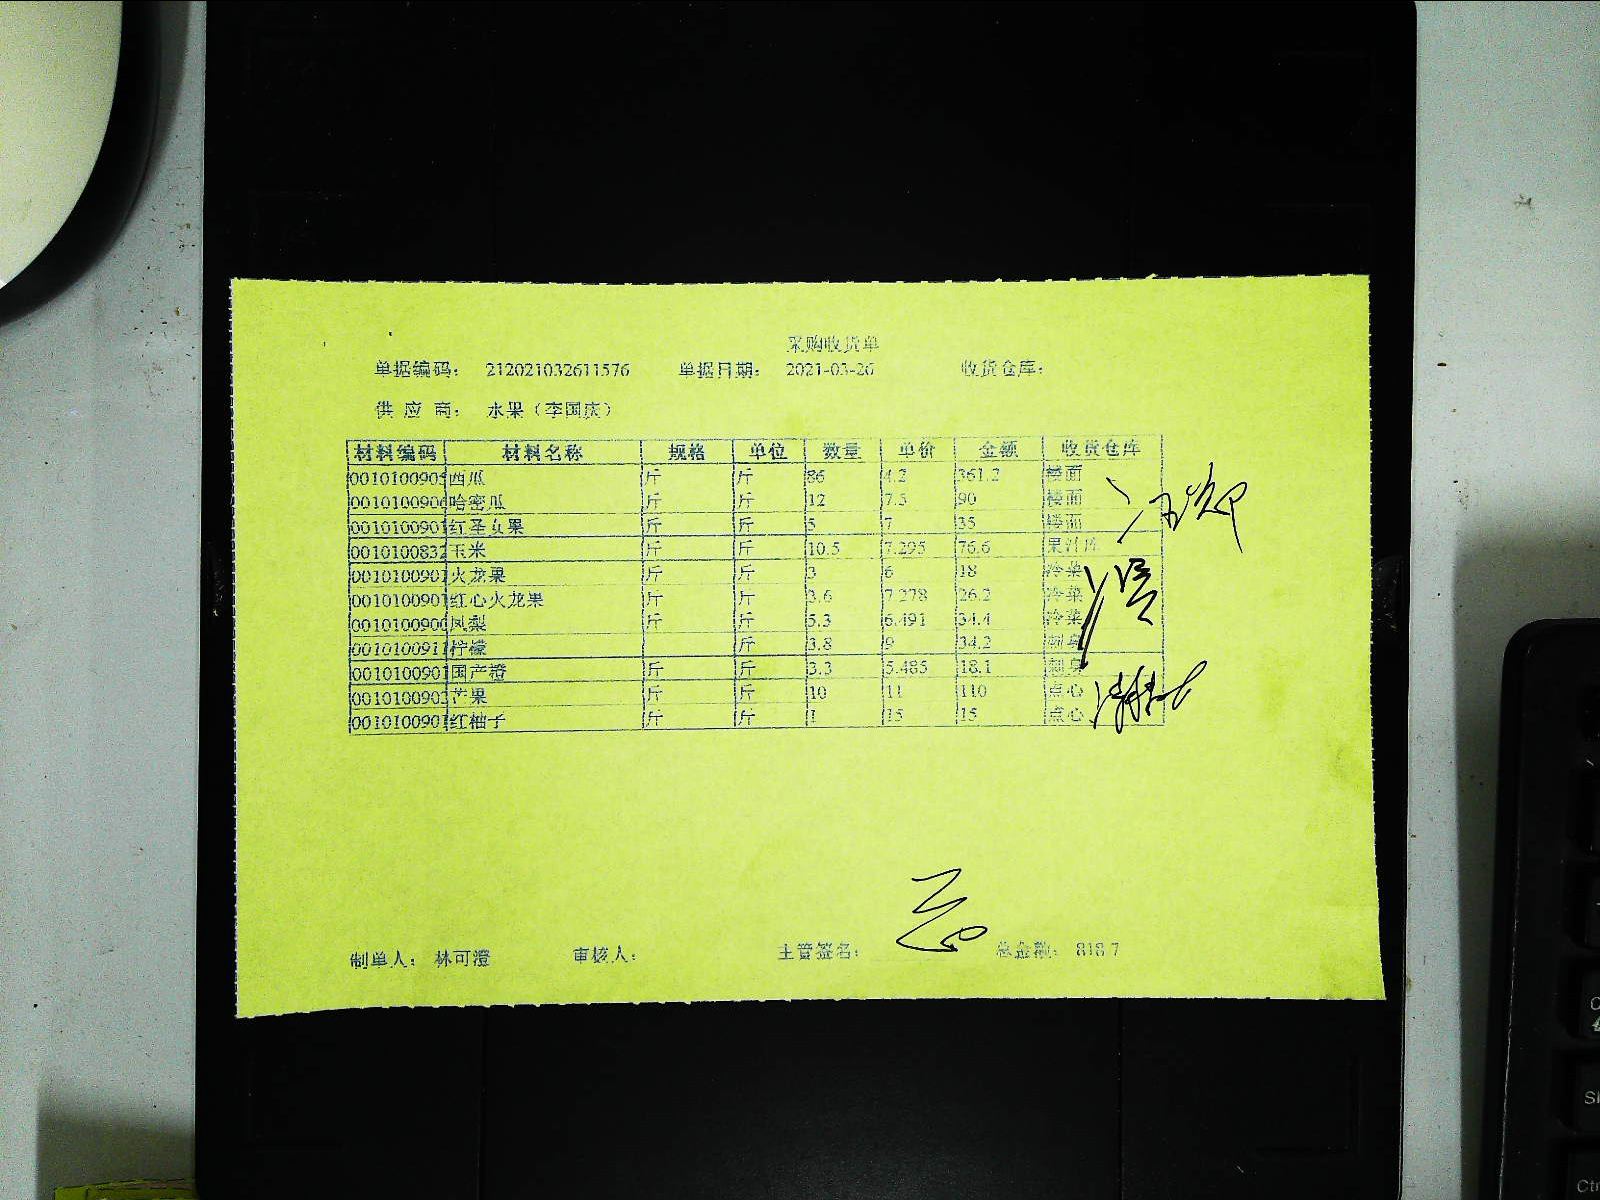 采购收货单
单据编码： 212021032611576 单据日期： 2021-03-26 收货仓库：
供 应 商： 水果（李国庆）
材料编码 材料名称 规格 单位 数量 单价 金额 收货仓库
0010100905 西瓜 斤 斤 86 4.2 361.2 楼面
0010100906 哈密瓜 斤 斤 12 7.5 90 楼面
0010100901 红圣女果 斤 斤 5 7 35 楼面
0010100832 玉米 斤 斤 10.5 7.295 76.6 果汁库
0010100901 火龙果 斤 斤 3 6 18 冷菜
0010100901 红心火龙果 斤 斤 3.6 7.278 26.2 冷菜
0010100900 凤梨 斤 斤 5.3 6.491 34.4 冷菜
0010100911 柠檬 斤 3.8 9 34.2 刺身
0010100901 国产橙 斤 斤 3.3 5.485 18.1 刺身
0010100903 芒果 斤 斤 10 11 110 点心
0010100901 红柚子 斤 斤 1 15 15 点心
制单人： 林可澄 审核人： 主管签名： 总金额： 818.7